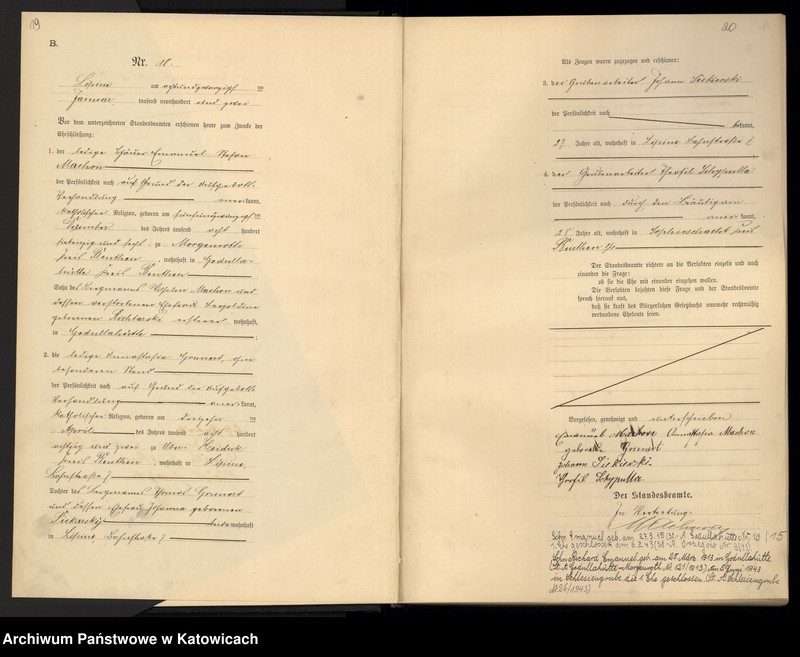 19
B.
Nr. 18.
Lipine am achtundzwanzigsten
Januar tausend neunhundert und zwei
Vor dem unterzeichneten Standesbeamten erschienen heute zum Zwecke der
Eheschließung:
1. der ledige Häuer Emanuel
Machon
der Persönlichkeit nach auf Grund der Aufgebots-
verhandlung anerkannt,
katholischer Religion, geboren am fünfundzwanzigsten
Dezember des Jahres tausend acht hundert
siebenzig und sechs zu Morgenroth
Kreis Beuthen, wohnhaft in Godulla-
hütte Kreis Beuthen
Sohn des Bergmanns Machon und
dessen verstorbener Ehefrau Leopoldine
geborenen ersterer wohnhaft
in Godullahütte
2. die ledige Anastasia Grunert, ohne
besonderen Stand
der Persönlichkeit nach auf Grund der Aufgebots-
verhandlung anerkannt,
katholischer Religion, geboren am
April des Jahres tausend acht hundert
achtzig und zwei zu Ober Heiduk
Kreis Beuthen, wohnhaft in Lipine,
Bahnstraße 7
Tochter des Bergmanns Grunert
und dessen Ehefrau Johanna geborenen
Piekarsky beide wohnhaft
in Lipine, Bahnstraße 7
20
Als Zeugen waren zugezogen und erschienen:
3. der Grubenarbeiter Johann
der Persönlichkeit nach
bekannt,
27 Jahre alt, wohnhaft in Lipine Bahnstraße 7
4. der Grubenarbeiter Theofil
der Persönlichkeit nach durch den Bräutigam
anerkannt,
25 Jahre alt, wohnhaft in Kreis
Beuthen
Der Standesbeamte richtete an die Verlobten einzeln und nach
einander die Frage:
ob sie die Ehe mit einander eingehen wollen.
Die Verlobten bejahten diese Frage und der Standesbeamte
sprach hierauf aus,
daß sie kraft des Bürgerlichen Gesetzbuchs nunmehr rechtmäßig
verbundene Eheleute seien.
Vorgelesen, genehmigt und unterschrieben
Emanuel Machon Anastasia Machon
geborene Grunert
Johann
Teofil
Der Standesbeamte.
In Vertretung:
Sohn Emanuel geb. am 27.3.15 (St.-A. Godullahütte Nr. /15
1. Ehe geschlossen am 6.2.43 (St.-A. Orzegow Nr.
Sohn Richard Emanuel geb. am 28. März 1913 in Godullahütte
(St. A. Godullahütte-Morgenroth Nr. 121/1913), am 5. Juni 1943
in Schlesiengrube die 1. Ehe geschlossen. (St. A. Schlesiengrube
Nr. 26/1943)
Archiwum Państwowe w Katowicach